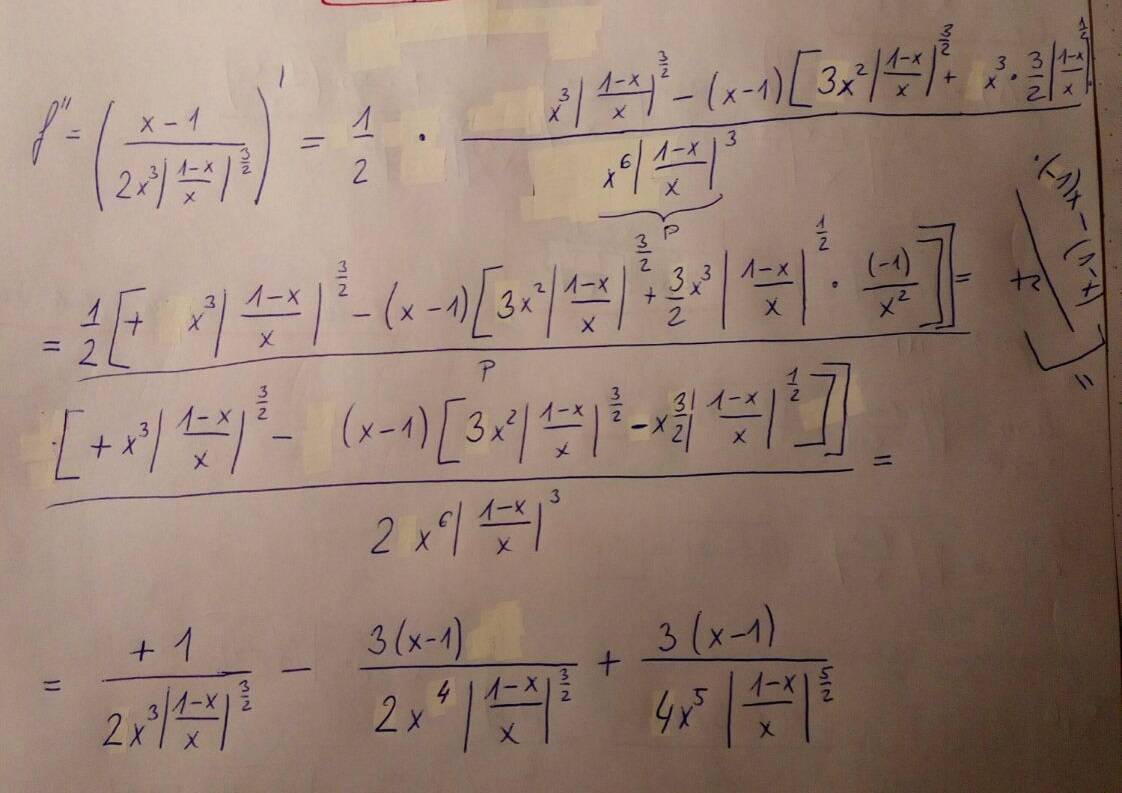 f'' = ( (x-1) / (2x³|(1-x)/x|^(3/2)) )' = 1/2 · ( x³|(1-x)/x|^(3/2) - (x-1)[3x²|(1-x)/x|^(3/2) + x³·3/2|(1-x)/x|^(1/2) · ) / ( x⁶|(1-x)/x|³ )
P
·(-1)x - (1-x)
= 1/2[+ x³|(1-x)/x|^(3/2) - (x-1)[3x²|(1-x)/x|^(3/2) + 3/2 x³|(1-x)/x|^(1/2) · (-1)/x²]] / P =
·[+x³|(1-x)/x|^(3/2) - (x-1)[3x²|(1-x)/x|^(3/2) - x 3/2|(1-x)/x|^(1/2)]] / ( 2x⁶|(1-x)/x|³ ) =
= +1 / (2x³|(1-x)/x|^(3/2)) - 3(x-1) / (2x⁴|(1-x)/x|^(3/2)) + 3(x-1) / (4x⁵|(1-x)/x|^(5/2))